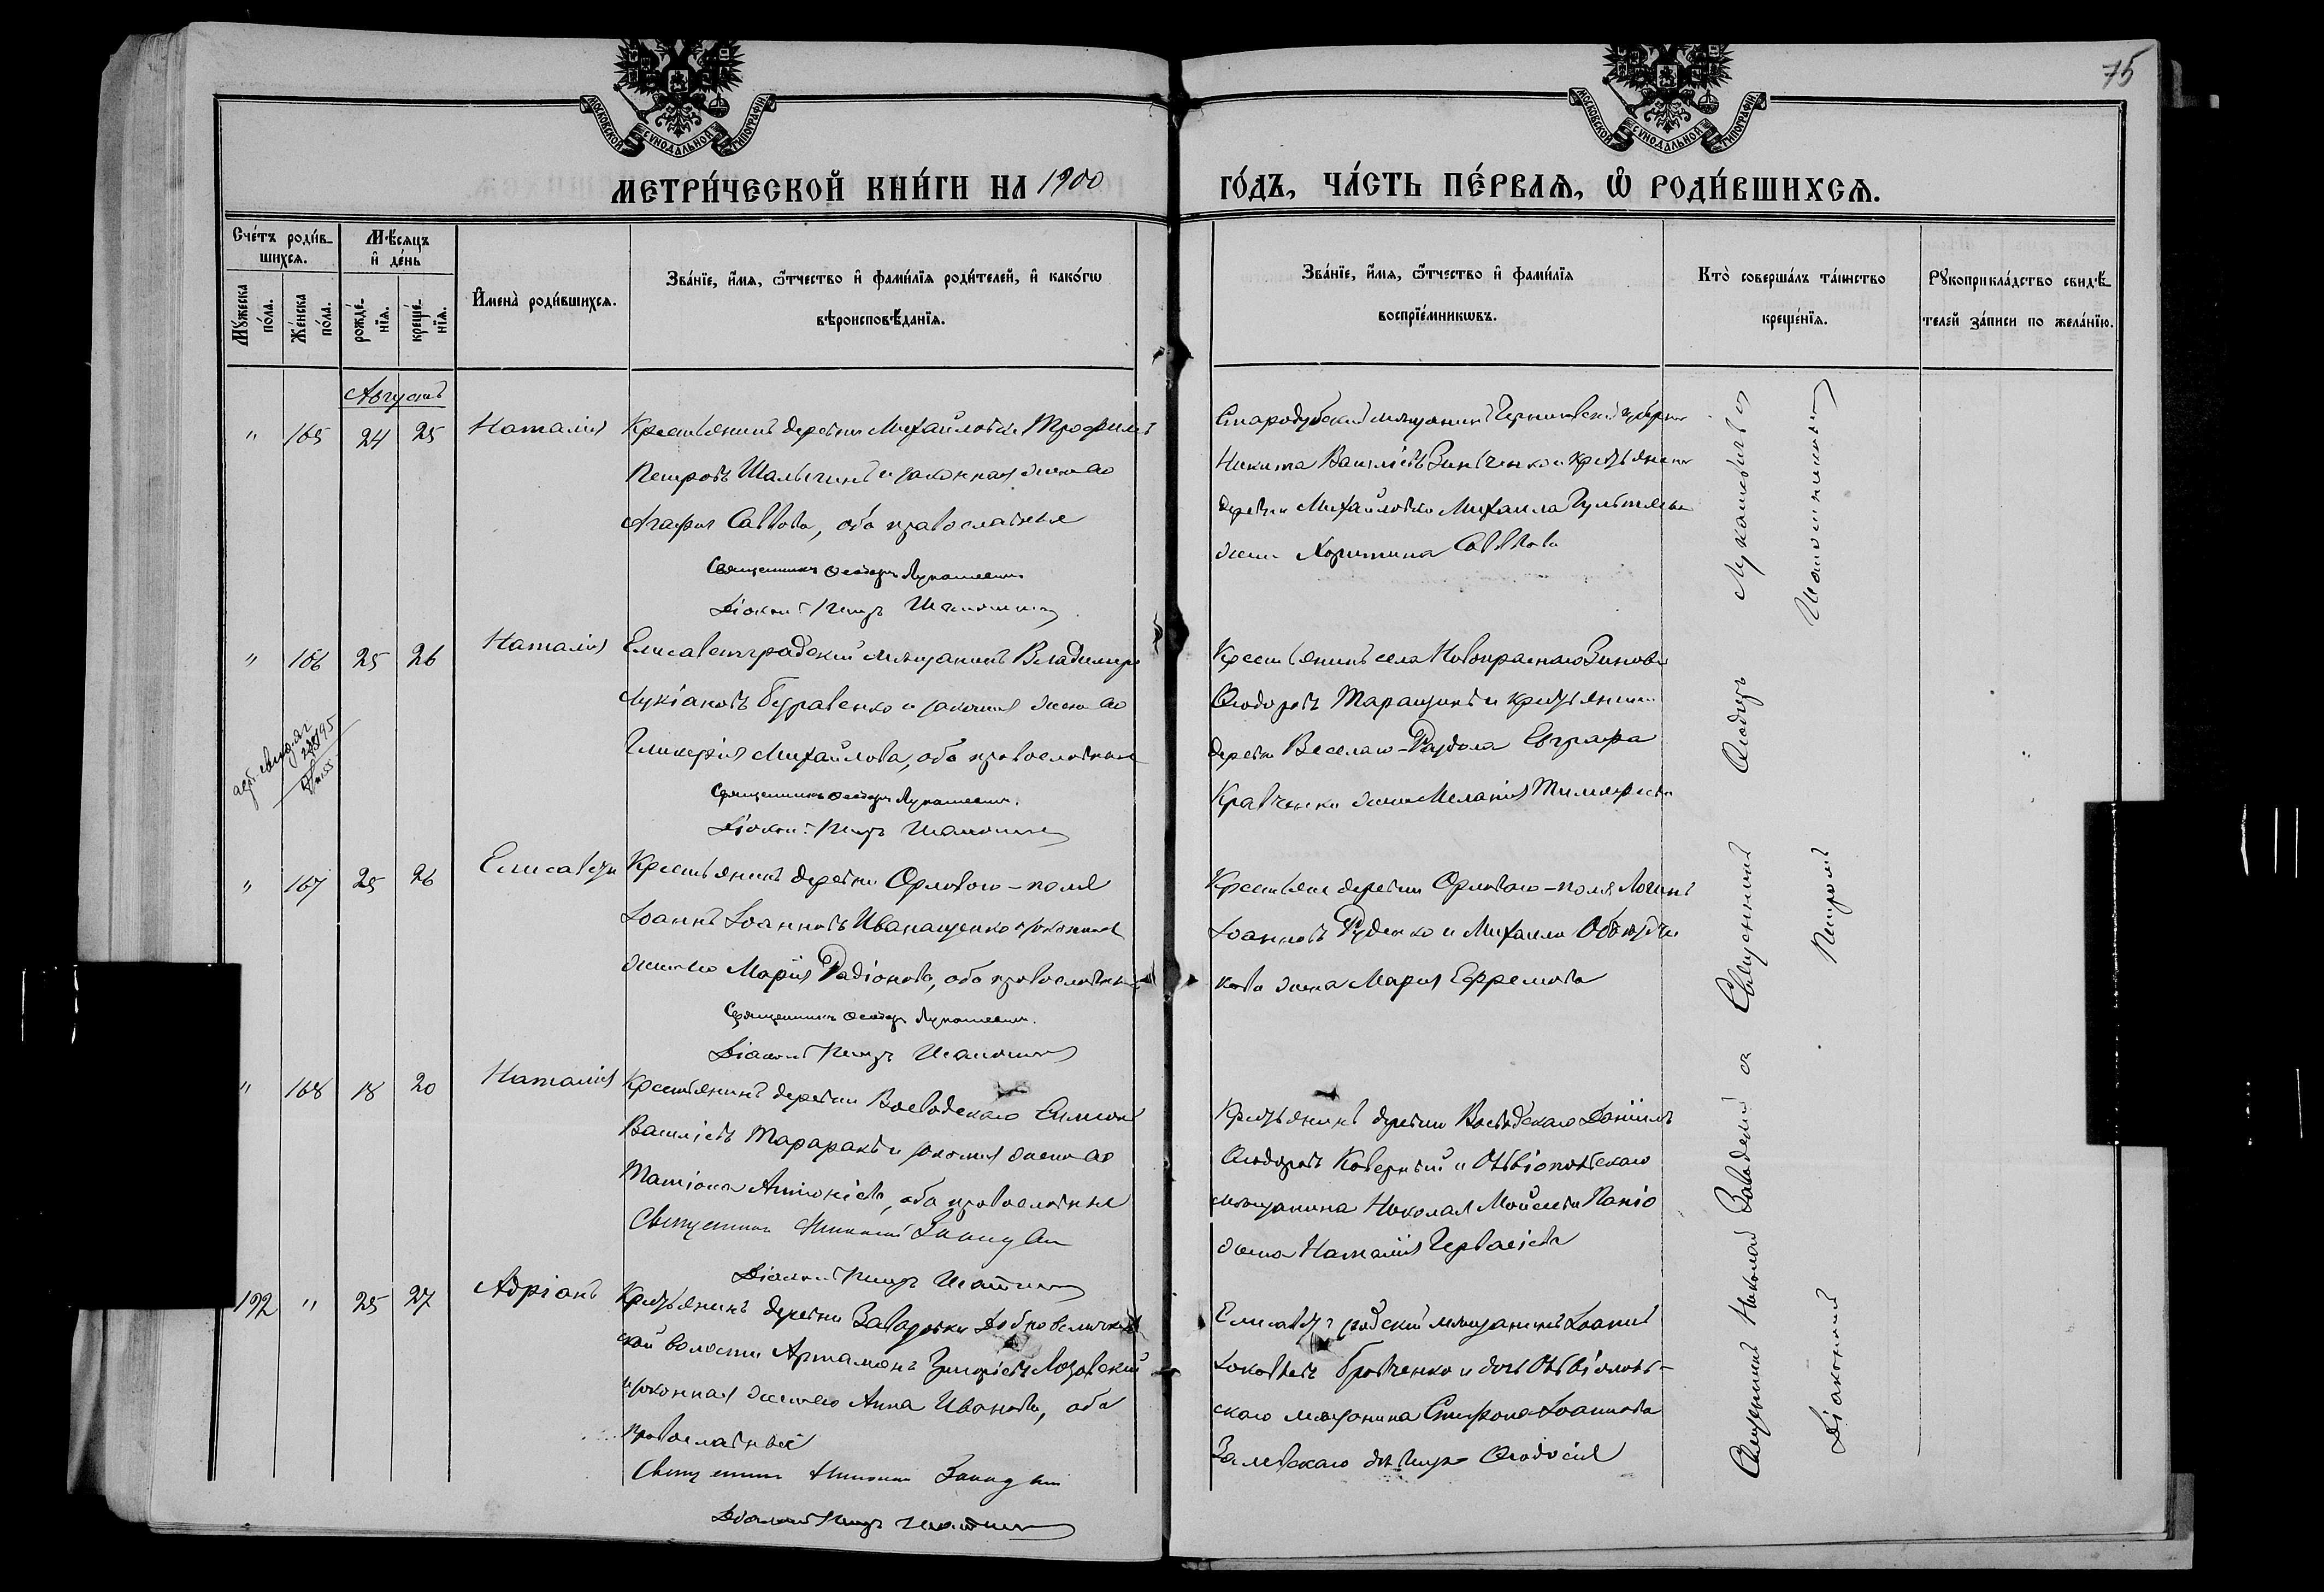 75
МОСКОВСКОЙ СУНОДАЛЬНОЙ ТИПОГРАФІИ
МОСКОВСКОЙ СУНОДАЛЬНОЙ ТИПОГРАФІИ
МЕТРИ́ЧЕСКОЙ КНИ́ГИ НА 1900
ГО́ДЪ, ЧА́СТЬ ПЕ́РВАЯ, Ѡ РОДИ́ВШИХСЯ.
Сче́тъ роди́в-
шихся.
Му́жеска
по́ла.
Же́нска
по́ла.
Мѣ́сяцъ
и де́нь
рожде́-
нїя.
креще́-
нїя.
Имена̀ роди́вшихся.
Зва́нїе, и́мя, ѻ́тчество и фами́лїя роди́телей, и како́гѡ
вѣроисповѣ́данїя.
Зва́нїе, и́мя, ѻ́тчество и фами́лїя
воспрїе́мникѡвъ.
Кто̀ соверша́лъ та́инство
креще́нїя.
Рꙋкоприкла́дство свидѣ́-
телей за́писи по жела́нїю.
Августъ
" 165 24 25 Наталія
Крестьянинъ деревни Михайловки Трофимъ
Петровъ Шалыгинъ и законная жена его
Агафія Саввова, оба православные
Священникъ Ѳеодоръ Лукашевичъ
Діаконъ Петръ
Стародубскій мѣщанинъ Черниговской губерніи
Никита Васильевъ Зинченко и крестьянина
деревни Михайловки Михаила
жена Харитина Саввова
" 166 25 26 Наталія
Елисаветградскій мѣщанинъ Владимиръ
Лукіановъ Буравенко и законная жена его
Гликерія Михайлова, оба православные
Священникъ Ѳеодоръ Лукашевичъ
Діаконъ Петръ
Крестьянинъ села Новокраснаго Зиновій
Ѳеодоровъ Таращукъ и крестьянина
деревни Веселаго-Раздола Евграфа
Кравченки жена Меланія
" 167 25 26 Елисавета
Крестьянинъ деревни Орловаго-поля
Іоаннъ Іоанновъ Иванащенко и законная
жена его Марія Радіонова, оба православные
Священникъ Ѳеодоръ Лукашевичъ
Діаконъ Петръ
Крестьяне деревни Орловаго-поля Логинъ
Іоанновъ Руденко и Михаила
жена Марія Ефремова
" 168 18 20 Наталія
Крестьянинъ деревни Воеводскаго Симеонъ
Васильевъ Тараракъ и законная жена его
Татіана Антоніева, оба православные
Священникъ Николай
Діаконъ Петръ
Крестьянинъ деревни Воеводскаго Даніилъ
Ѳеодоровъ Коверный и Ольвіопольскаго
мѣщанина Николая Мойсеева
жена Наталія Гервасіева
192 " 25 27 Адріанъ
Крестьянинъ деревни Завадовки Добровеличков-
ской волости Артамонъ Григорьевъ Лозовскій
и законная жена его Анна Иванова, оба
православные
Священникъ Николай
Діаконъ Петръ
Елисаветградскій мѣщанинъ Іоаннъ
Іаковлевъ Бровченко и дочь Ольвіополь-
скаго мѣщанина Стефана Іоаннова
Залевскаго дѣвица Ѳеодосія
Священникъ Николай и Священникъ Ѳеодоръ Лукашевичъ съ
Діакономъ Петромъ